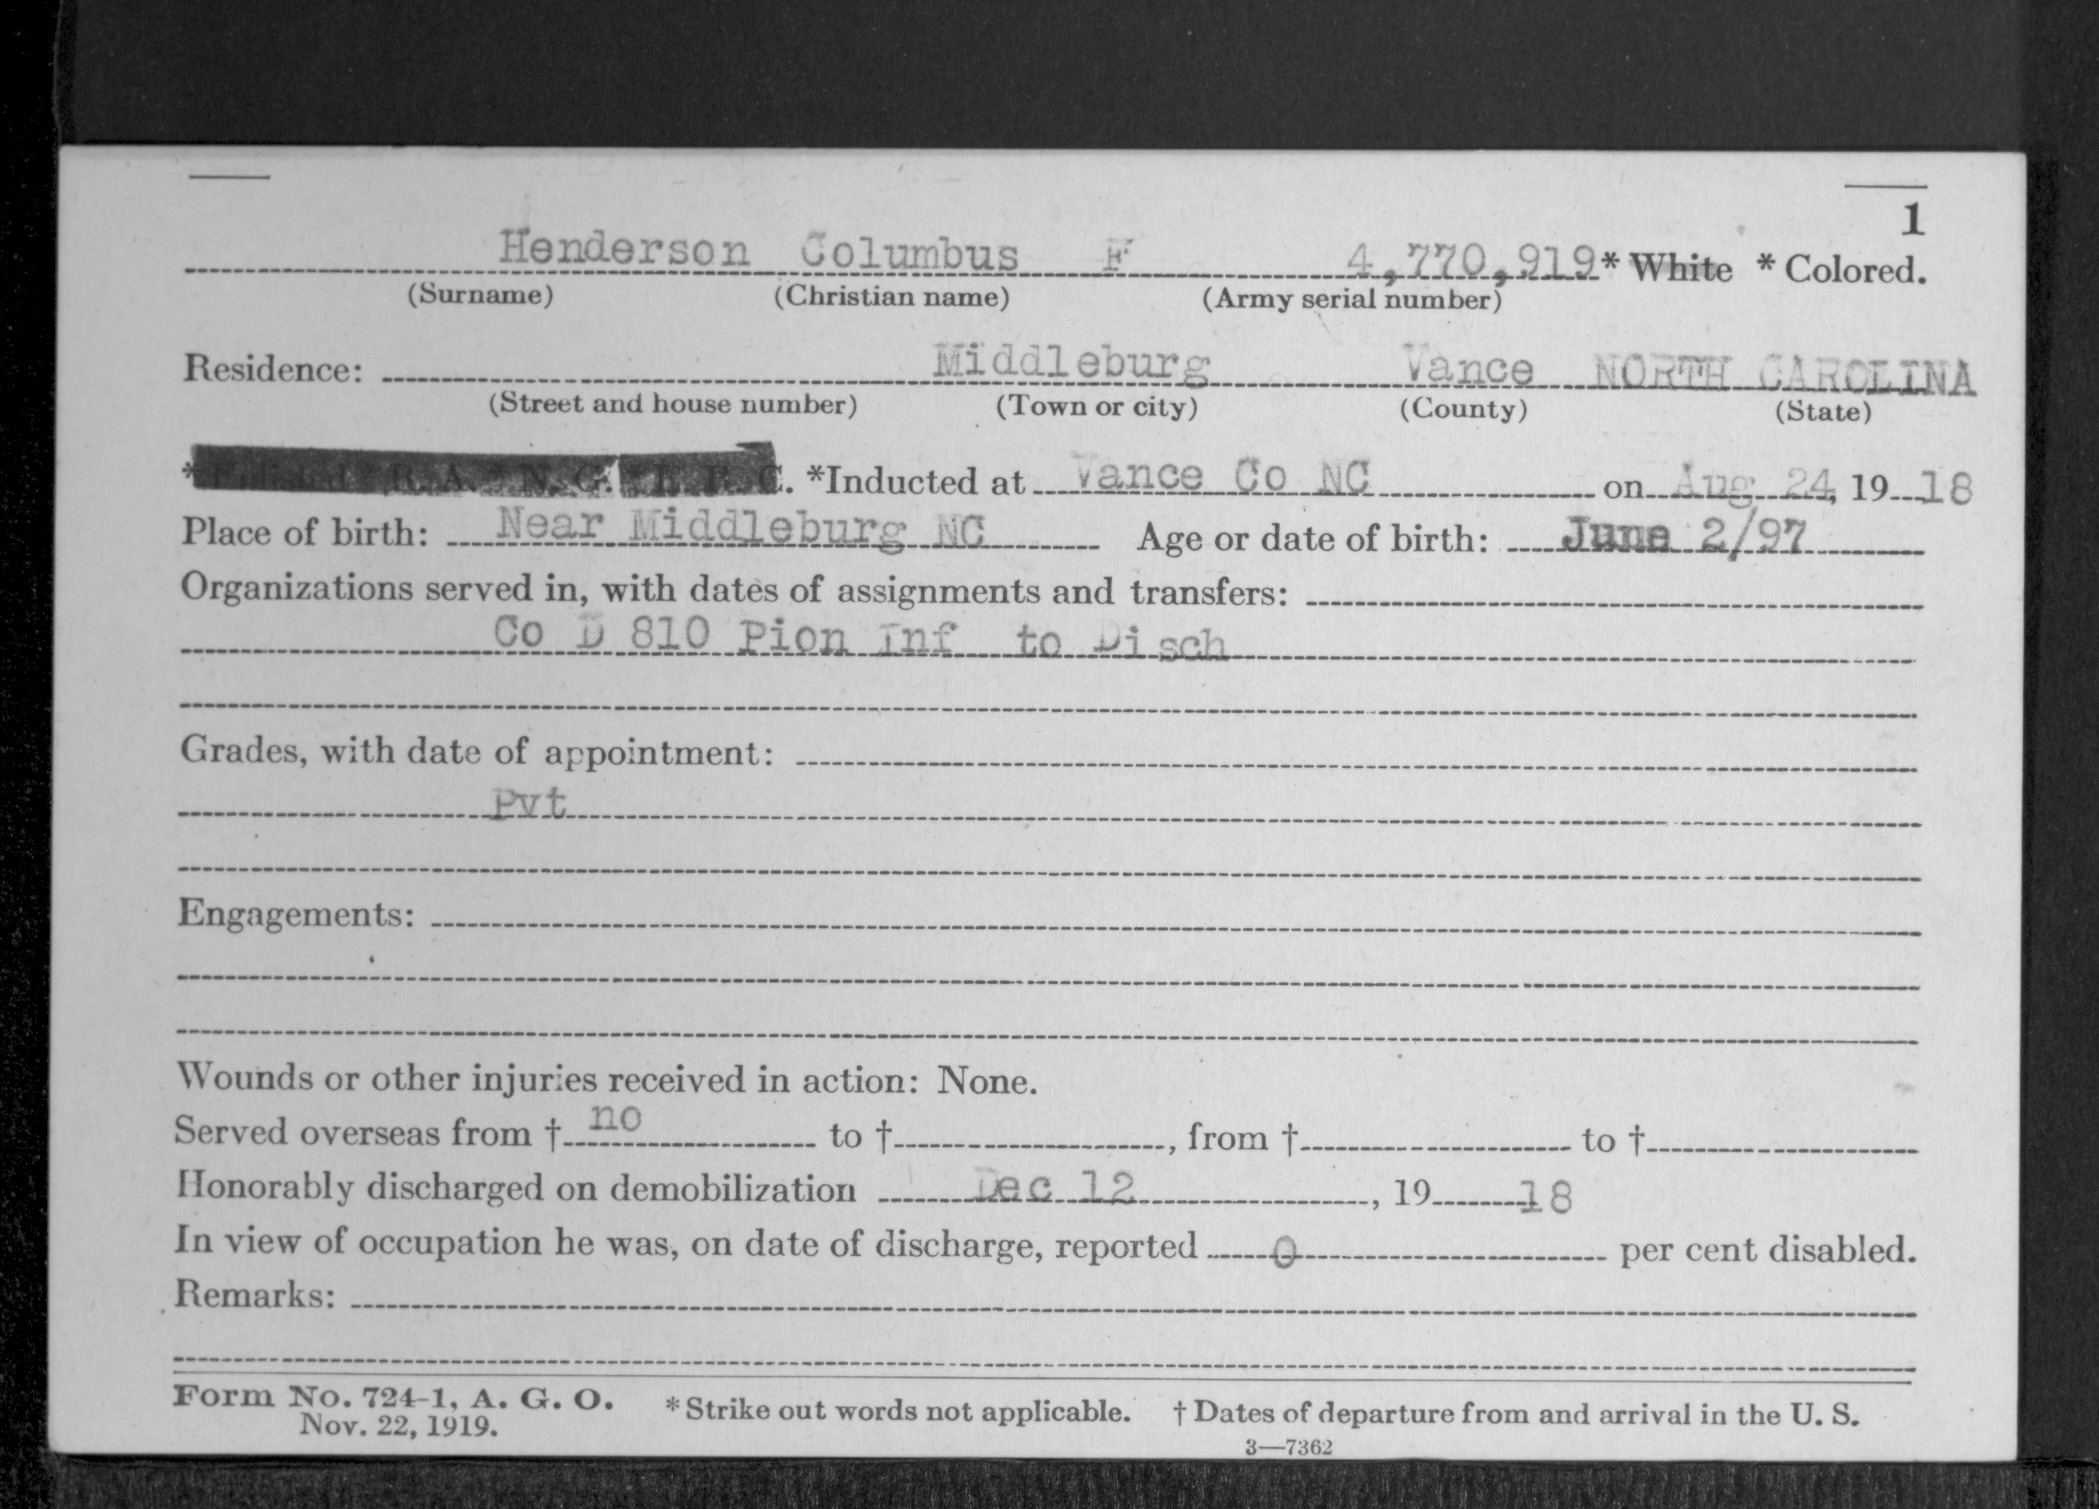 1
Henderson Columbus F 4,770,919 * White * Colored.
(Surname) (Christian name) (Army serial number)
Residence: Middleburg Vance NORTH CAROLINA
(Street and house number) (Town or city) (County) (State)
* Enlisted R. A. * N. G. * E. R. C. *Inducted at Vance Co NC on Aug 24, 19 18
Place of birth: Near Middleburg NC Age or date of birth: June 2/97
Organizations served in, with dates of assignments and transfers:
Co D 810 Pion Inf to Disch
Grades, with date of appointment:
Pvt
Engagements:
Wounds or other injuries received in action: None.
Served overseas from † no to † , from † to †
Honorably discharged on demobilization Dec 12 , 19 18
In view of occupation he was, on date of discharge, reported 0 per cent disabled.
Remarks:
Form No. 724-1, A. G. O. * Strike out words not applicable. † Dates of departure from and arrival in the U. S.
Nov. 22, 1919.
3—7362